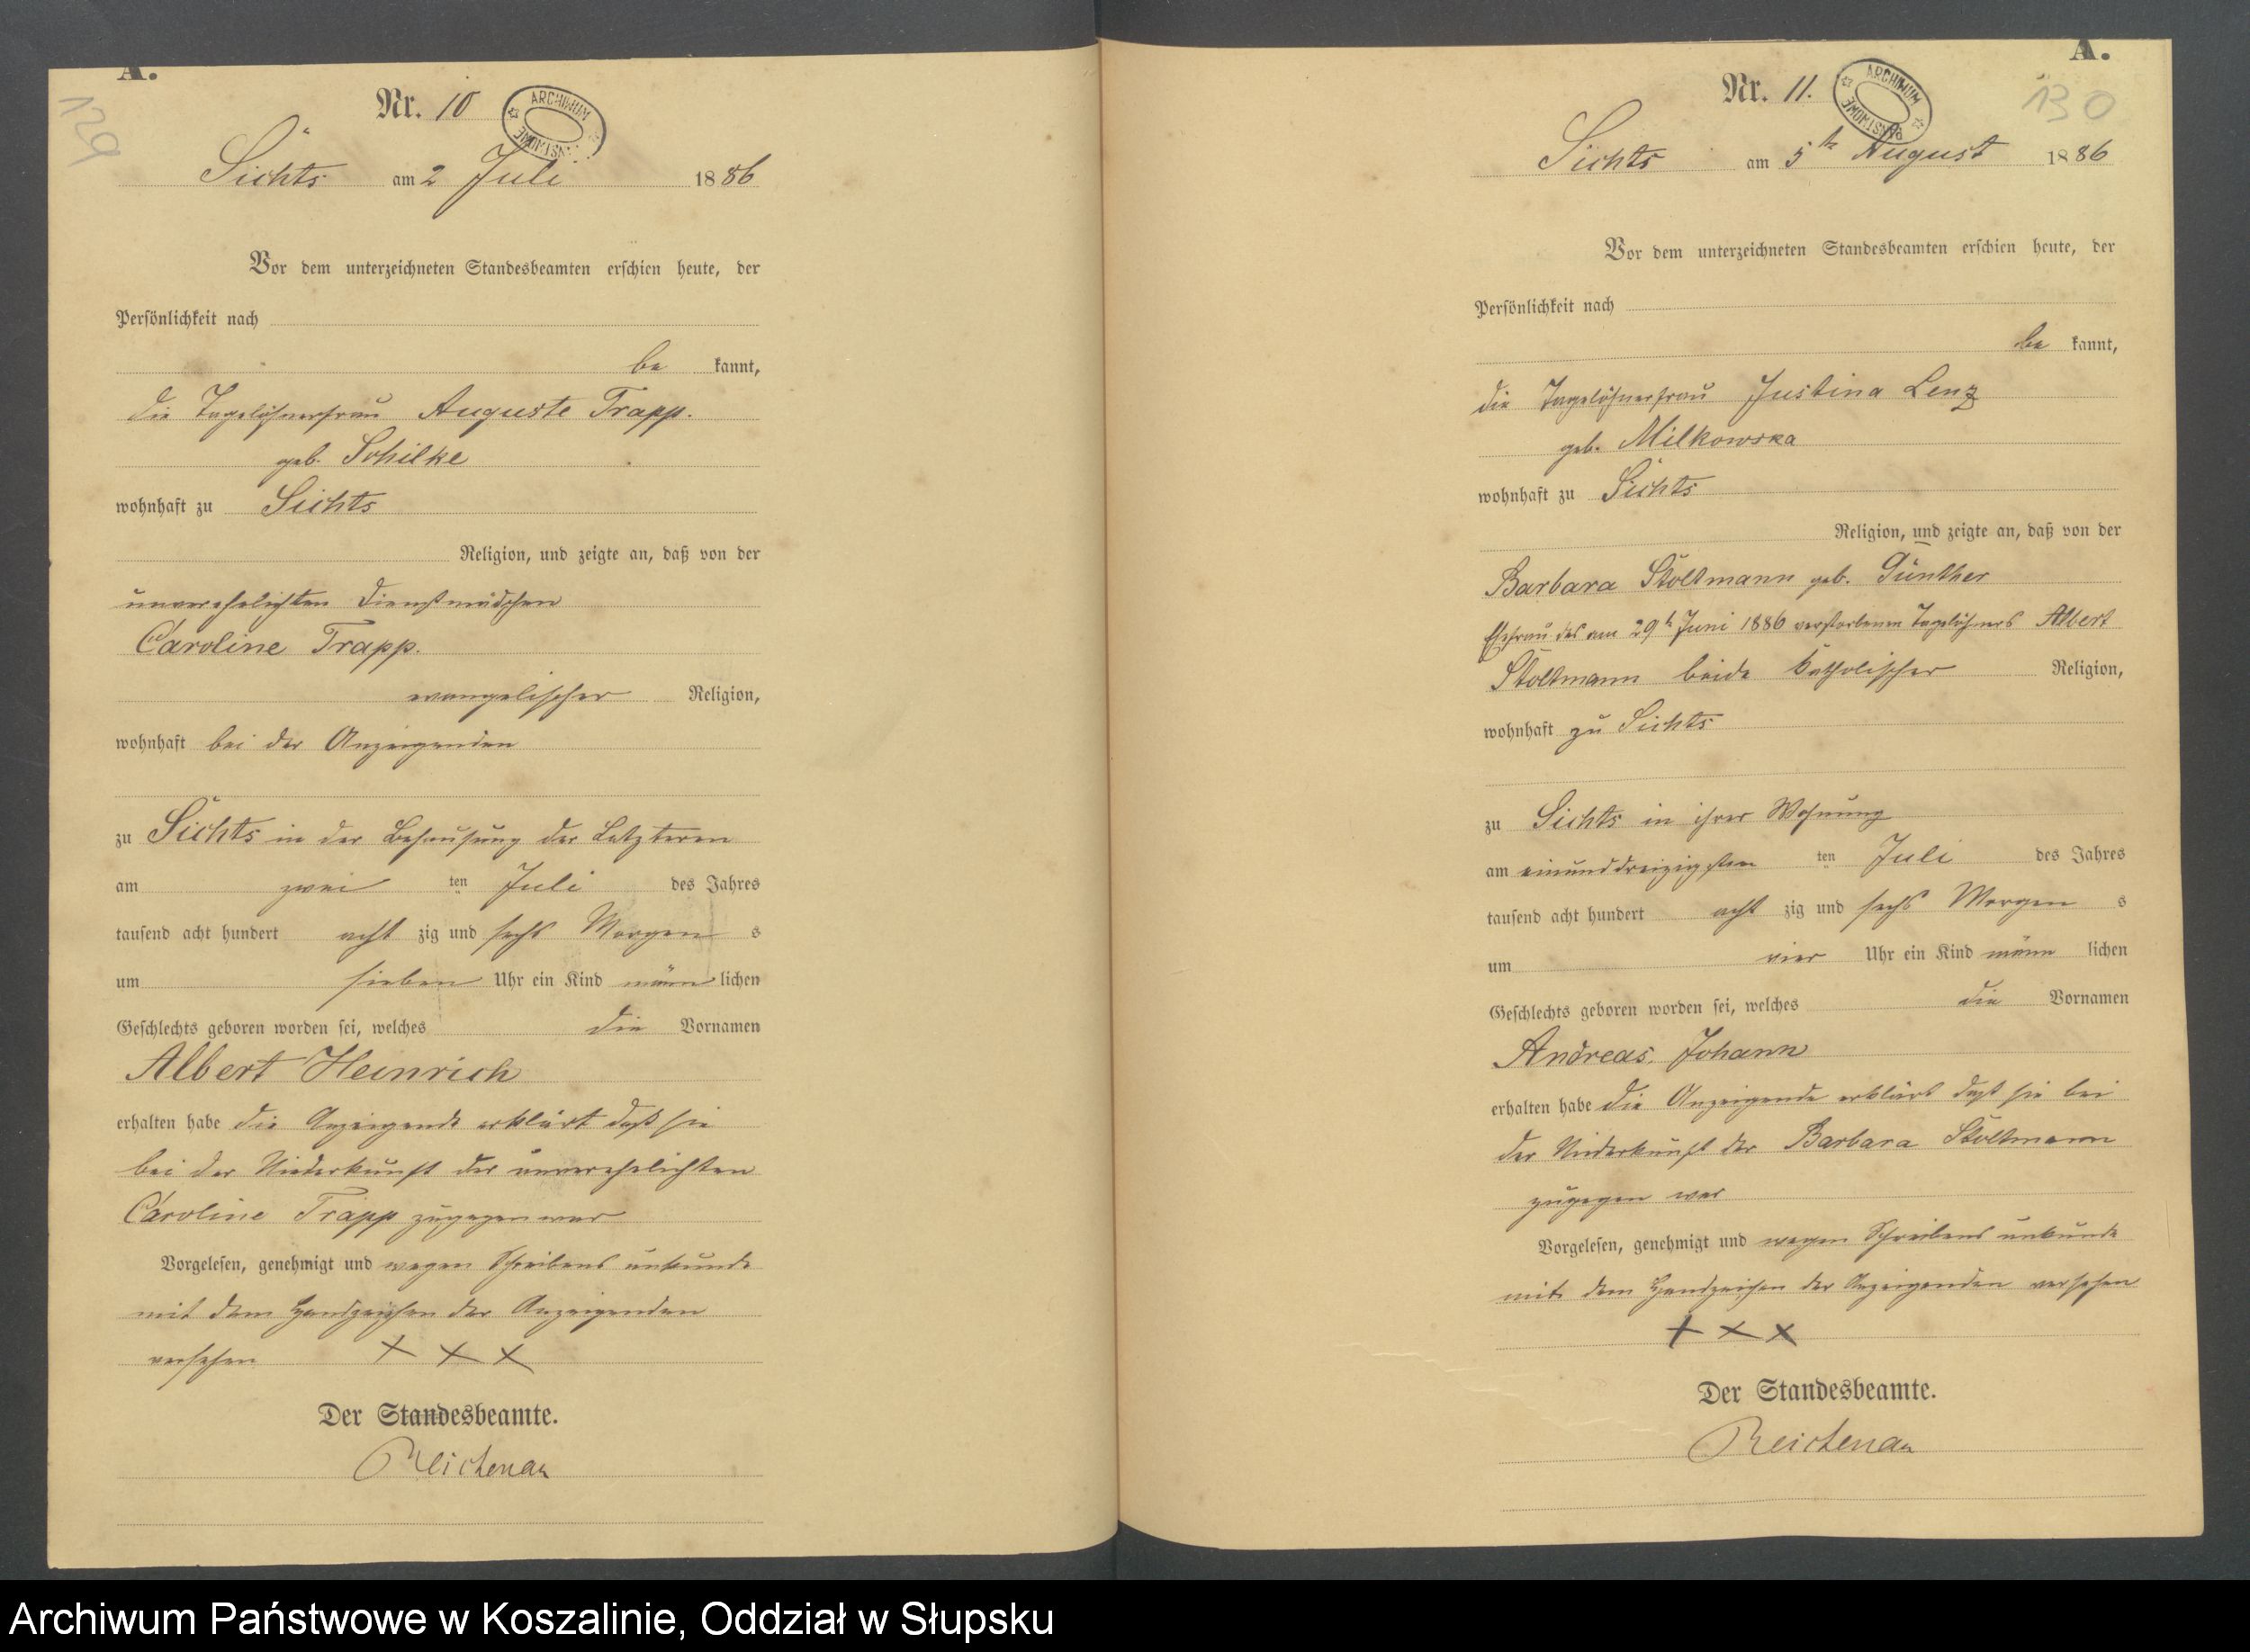 A.
129
Nr. 10
ARCHIWUM PAŃSTWOWE
Sichts am 2 Juli 1886
Vor dem unterzeichneten Standesbeamten erschien heute, der
Persönlichkeit nach
be kannt,
die Tagelöhnerfrau Auguste Trapp.
geb. Schilke
wohnhaft zu Sichts
Religion, und zeigte an, daß von der
unverehelichten Dienstmädchen
Caroline Trapp.
evangelischer Religion,
wohnhaft bei der Anzeigenden
zu Sichts in der Behausung der Letzteren
am zwei ten Juli des Jahres
tausend acht hundert acht zig und sechs Morgen s
um sieben Uhr ein Kind männ lichen
Geschlechts geboren worden sei, welches die Vornamen
Albert Heinrich
erhalten habe die Anzeigende erklärt daß sie
bei der Niederkunft der unverehelichten
Caroline Trapp zugegen war
Vorgelesen, genehmigt und wegen Schreibens unkunde
mit dem Handzeichen der Anzeigenden
versehen + + +
Der Standesbeamte.
Reichenau
A.
130
Nr. 11.
ARCHIWUM PAŃSTWOWE
Sichts am 5t August 1886
Vor dem unterzeichneten Standesbeamten erschien heute, der
Persönlichkeit nach
be kannt,
die Tagelöhnerfrau Justina Lenz
geb. Milkowska
wohnhaft zu Sichts
Religion, und zeigte an, daß von der
Barbara Stoltmann geb. Günther
Ehefrau des am 29t Juni 1886 verstorbenen Tagelöhners Albert
Stoltmann beide katholischer Religion,
wohnhaft zu Sichts
zu Sichts in ihrer Wohnung
am einunddreizigsten ten Juli des Jahres
tausend acht hundert acht zig und sechs Morgen s
um vier Uhr ein Kind männ lichen
Geschlechts geboren worden sei, welches die Vornamen
Andreas, Johann
erhalten habe die Anzeigende erklärt daß sie bei
der Niederkunft der Barbara Stoltmann
zugegen war
Vorgelesen, genehmigt und wegen Schreibens unkunde
mit dem Handzeichen der Anzeigenden versehen
+ + +
Der Standesbeamte.
Reichenau
Archiwum Państwowe w Koszalinie, Oddział w Słupsku